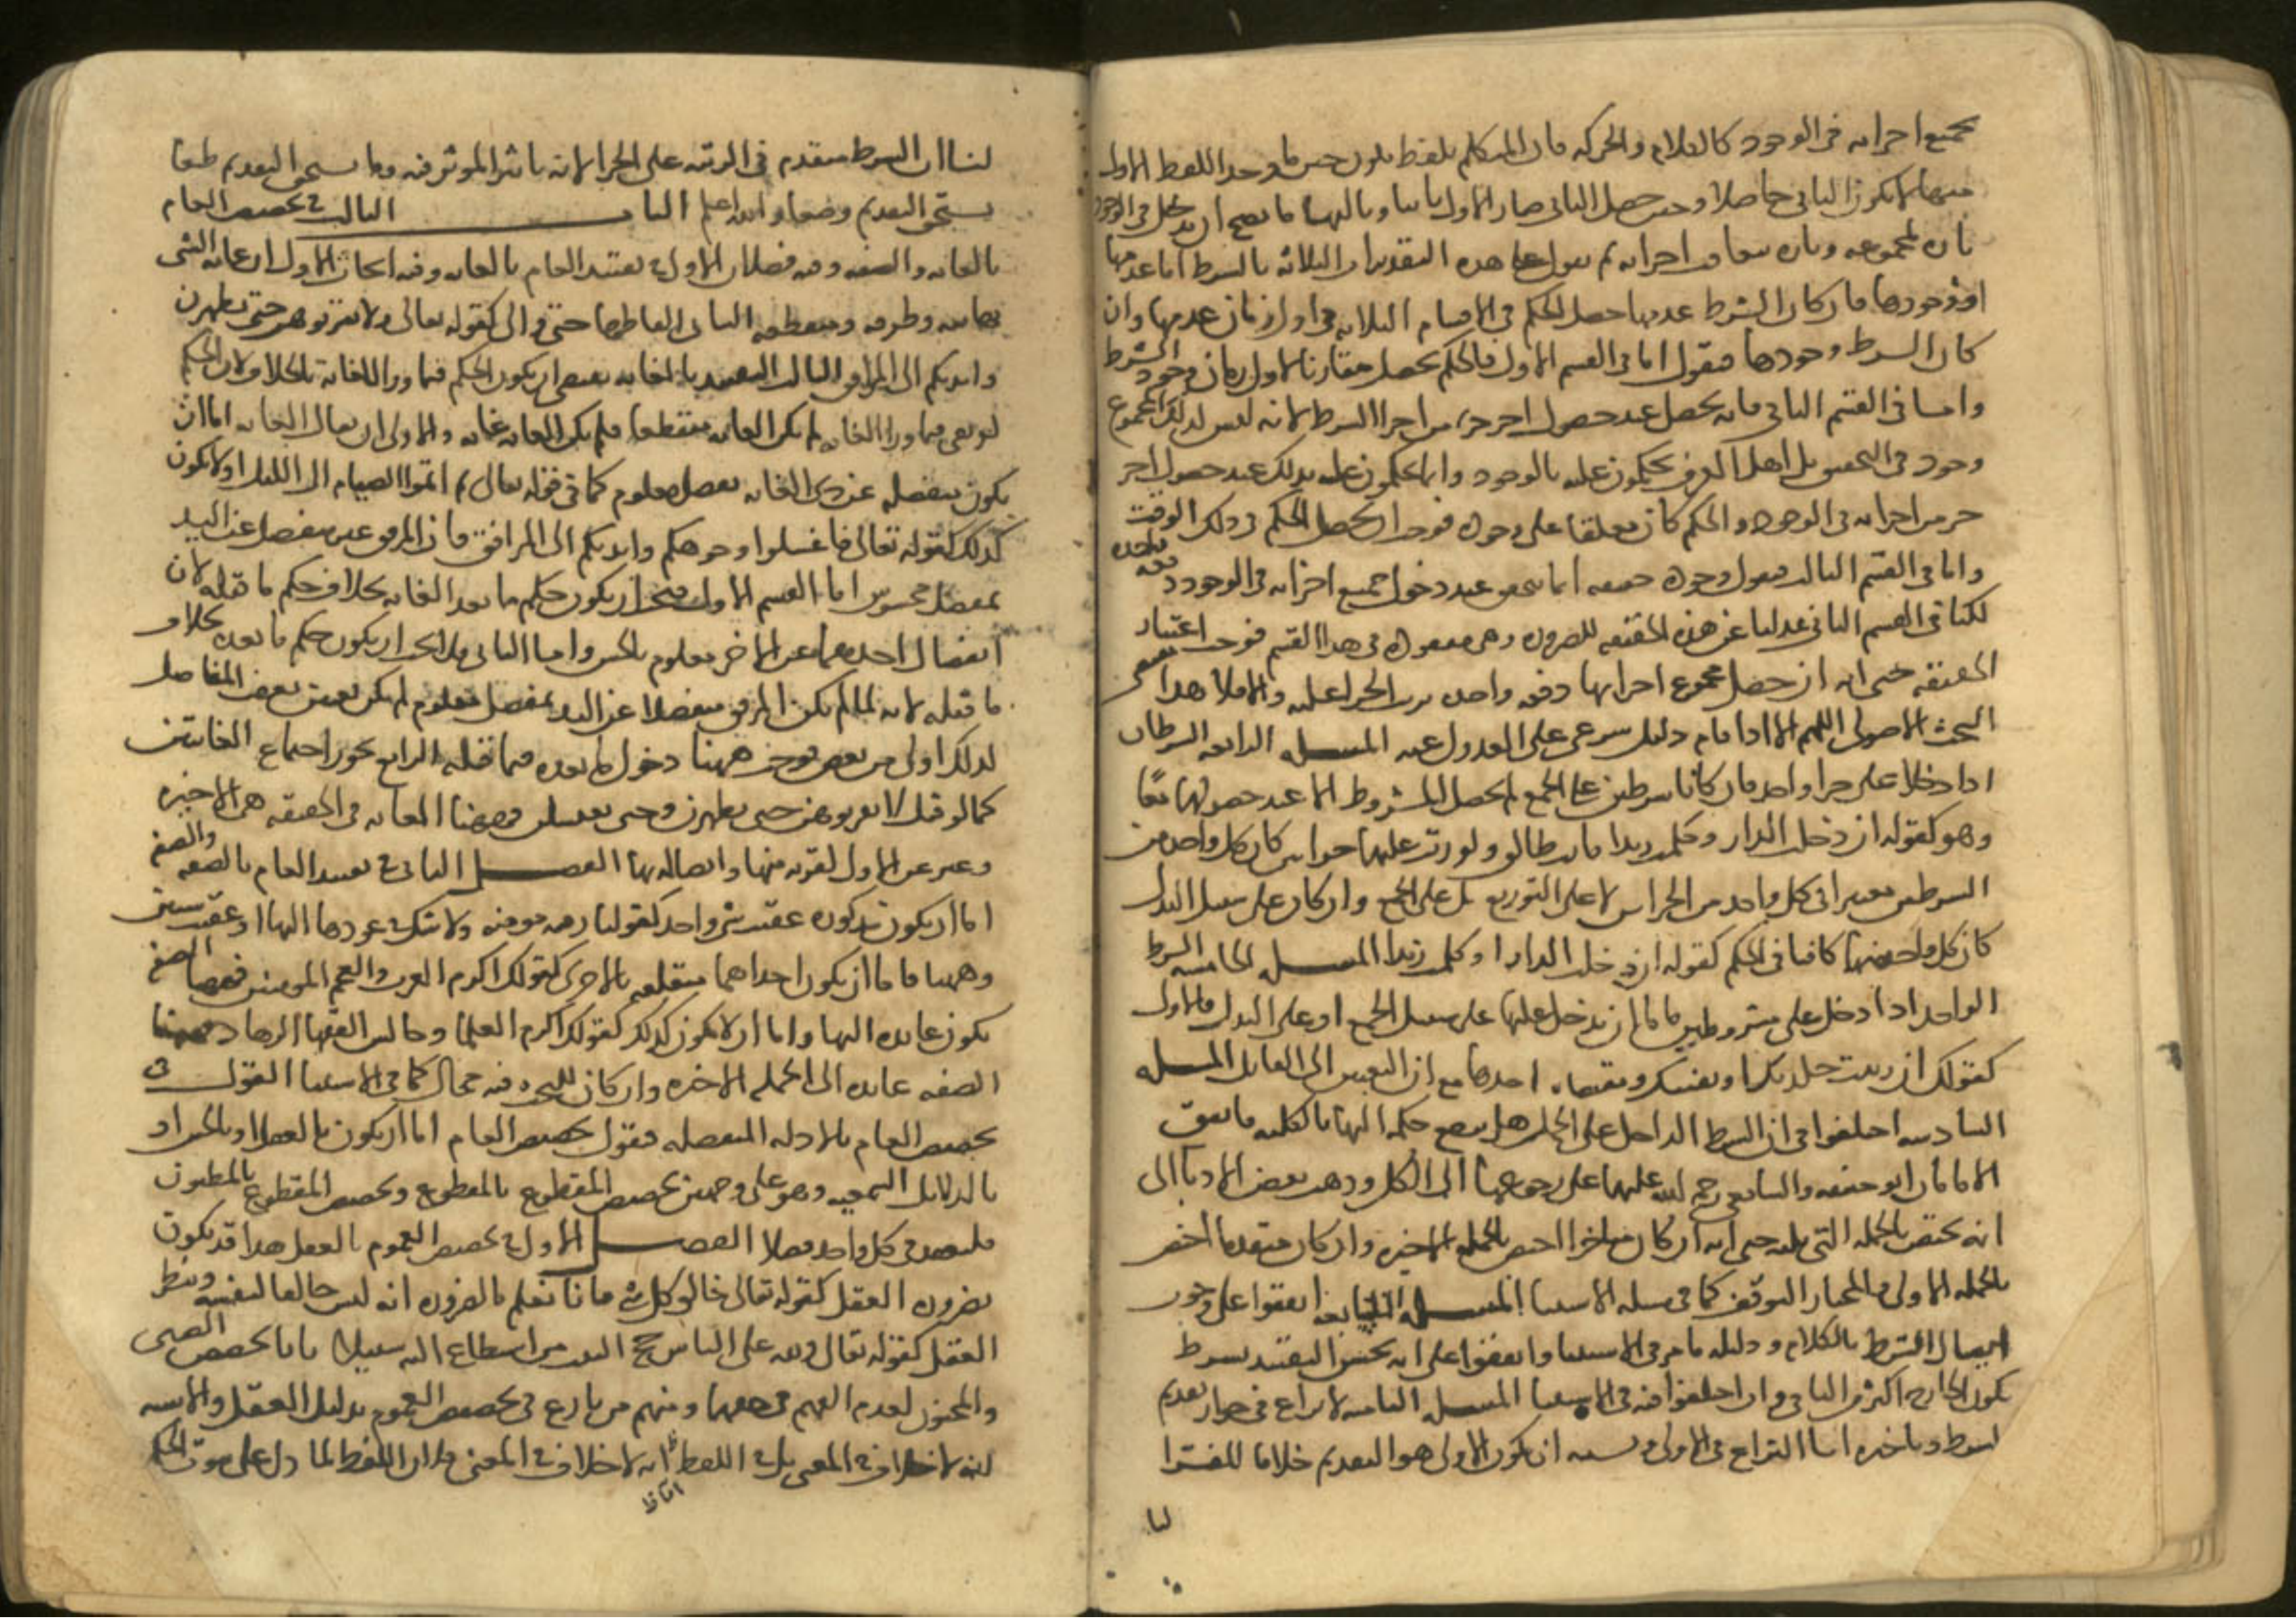 بجميع اجزايه في الوجود كالكلام والحركة فان المتكلم بلفظ يكون حين ما وجد اللفظ الاول
منها لا يكون الثاني حاصلا وحين حصل الثاني صار الاول فانيا وثالثها ما يصح ان يدخل في الوجود
تارة بمجموعه وتارة بتعاقب اجزايه ثم نقول على هذه التقديرات الثلاثة بالشرط اما عدمها
او وجودها فان كان الشرط عدمها حصل الحكم في الاقسام الثلاثة في اول ازمان عدمها وان
كان الشرط وجودها فنقول اما في القسم الاول فالحكم يحصل مقارنا لاول زمان وجود الشرط
واما في القسم الثاني فانه يحصل عند حصول اخر جزء من اجزا الشرط لانه ليس لذلك المجموع
وجود في التحقيق بل اهل العرف يحكمون عليه بالوجود وانما يحكمون عليه بذلك عند حصول اخر
جزء من اجزايه في الوجود والحكم كان معلقا على وجوده فوجب ان يحصل الحكم في ذلك الوقت
واما في القسم الثالث فنقول وجوده حقيقة انما يتحقق عند دخول جميع اجزايه في الوجود دفعة واحدة
لكنا في القسم الثاني عدلنا عن هذه الحقيقة للضرورة وهي مفقودة في هذا القسم فوجب اعتبار
الحقيقة حتى انه ان حصل مجموع اجزايها دفعة واحدة ترتب الجزا عليه والا فلا هذا
البحث الاصولي اللهم الا اذا قام دليل شرعي على العدول عنه المسلة الرابعة الشرطان
اذا دخلا على جزا واحد فان كانا شرطين على الجمع لم يحصل المشروط الا عند حصولهما معا
وهو كقوله ان دخلت الدار وكلمت زيدا فانت طالق ولو رتب عليهما جزاين كان كل واحد من
الشرطين معتبرا في كل واحد من الجزاين لا على التوزيع بل على الجمع وان كان على سبيل البدل
كان كل واحد منهما كافيا في الحكم كقوله ان دخلت الدار او كلمت زيدا المسلة الخامسة الشرط
الواحد اذا دخل على مشروطين فاما ان يدخل عليهما على سبيل الجمع او على البدل فالاول
كقولك ان زنيت جلدتك او نفيتك احدها مع ان التعيين الى القايل المسلة
السادسة اختلفوا في ان الشرط الداخل على الجمل هل يرجع حكمه اليها بالكلية فاتفق
الامامان ابو حنيفة والشافعي رحمة الله عليهما على رجوعهما الى الكل وذهب بعض الادبا الى
انه يختص بالجملة التي تليه حتى انه ان كان متاخرا اختص بالجملة الاخيرة وان كان متقدما اختص
بالجملة الاولى والمختار التوقف كما في مسلة الاستثنا المسلة السابعة اتفقوا على وجوب
اتصال الشرط بالكلام ودليله ما مر في الاستثنا واتفقوا على انه يحسن التقييد بشرط
يكون الخارج اكثر من الباقي وان اختلفوا فيه في الاستثنا المسلة الثامنة لا نزاع في جواز تقديم
الشرط وتاخيره انما النزاع في الاولى ويشبه ان يكون الاولى هو التقديم خلافا للفرا
لنا
لنا ان الشرط متقدم في الرتبة على الجزا لانه تاثر الموثر فيه وما يستحق التقديم طبعا
يستحق التقديم وضعا والله اعلم الباب الثالث في تخصيص العام
بالغاية والصفة وفيه فصلان الاول في تقييد العام بالغاية وفيه ابحاث الاول ان غاية الشي
نهايته وطرفه ومقطعه الثاني الفاظها حتى والى كقوله تعالى ولا تقربوهن حتى يطهرن
وايديكم الى المرافق الثالث التقييد بالغاية يقتضي ان يكون الحكم فيما ورا الغاية بالخلاف لان الحكم
لو بقي فيما ورا الغاية لم تكن الغاية منقطعا فلم تكن الغاية غاية والاولى ان يقال الغاية اما ان
تكون منفصلة عن ذي الغاية بفصل معلوم كما في قوله تعالى ثم اتموا الصيام الى الليل او لا تكون
كذلك كقوله تعالى فاغسلوا وجوهكم وايديكم الى المرافق فان المرفق غير منفصل عن اليد
بمفصل محسوس اما القسم الاول فيجب ان يكون حكم ما بعد الغاية بخلاف حكم ما قبله لان
انفصال احدهما عن الاخر معلوم بالحس واما الثاني فلا يجب ان يكون حكم ما بعده بخلاف
ما قبله لانه لما لم يكن المرفق منفصلا عن اليد بمفصل معلوم لم يكن تعيين بعض المفاصل
لذلك اولى من بعض فوجب ههنا دخول ما بعده فيما قبله الرابع يجوز اجتماع الغايتين
كما لو قيل لا تقربوهن حتى يطهرن وحتى يغتسلن فههنا الغاية في الحقيقة هي الاخيرة
وعبر عن الاول لقربه منها واتصاله بها الفصل الثاني في تقييد العام بالصفة والصفة
اما ان تكون مذكورة عقيب شي واحد كقولنا رقبة مومنة ولا شك في عودها اليها او عقيب شيين
وههنا فاما ان يكون احداهما متعلقة بالاخرى كقولك اكرم العرب والعجم المومنين فههنا الصفة
تكون عايدة اليهما واما ان لا تكون كذلك كقولك اكرم العلما وجالس الفقها الزهاد فههنا
الصفة عايدة الى الجملة الاخيرة وان كان للبحث فيه مجال كما في الاستثنا القول في
تخصيص العام بالادلة المنفصلة فنقول تخصيص العام اما ان يكون بالعقل او بالحس او
بالدلايل السمعية وهو على وجهين تخصيص المقطوع بالمقطوع وتخصيص المقطوع بالمظنون
فلنعقد في كل واحد فصلا الفصل الاول في تخصيص العموم بالعقل هذا قد يكون
بضرورة العقل كقوله تعالى خالق كل شي فانا نعلم بالضرورة انه ليس خالقا لنفسه وبنظر
العقل كقوله تعالى ولله على الناس حج البيت من استطاع اليه سبيلا فانا نخصص الصبي
والمجنون لعدم الفهم في حقهما ومنهم من نازع في تخصيص العموم بدليل العقل والاشبه
انه لا خلاف في المعنى بل في اللفظ اما انه لا خلاف في المعنى فلان اللفظ لما دل على ثبوت الحكم